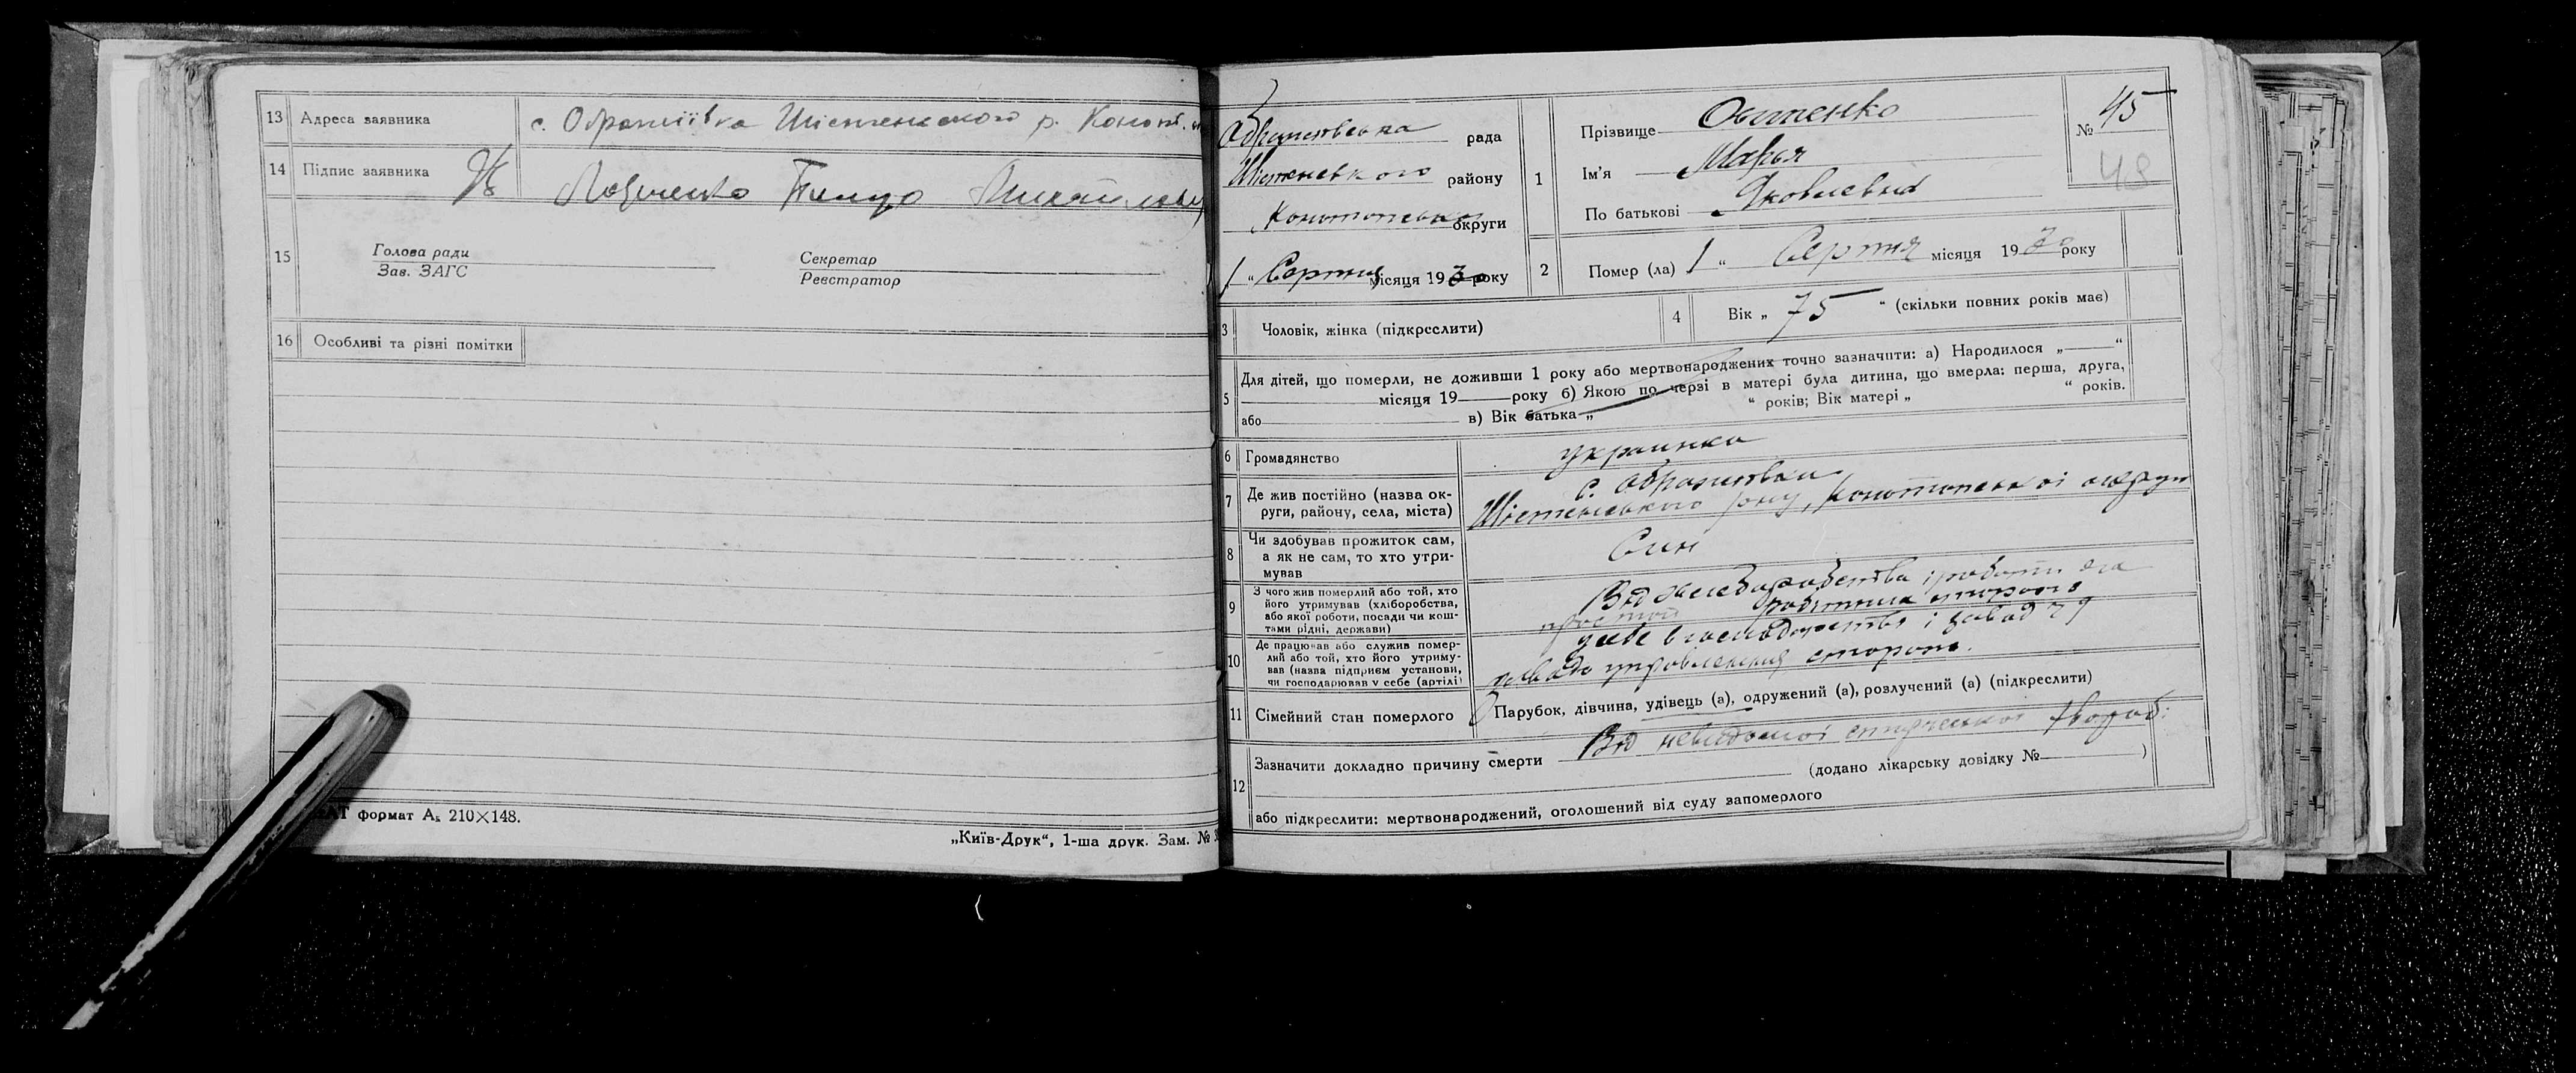 13 Адреса заявника с. Обратіївка Шістенського р. Коноп.
14 Підпис заявника
15 Голова ради
Зав. ЗАГС
Секретар
Реєстратор
16 Особливі та різні помітки
формат А₅ 210×148.
„Київ-Друк“, 1-ша друк. Зам. №
рада
району
Конотопської округи
1 „ Серпня місяця 1930 року
1 Прізвище
Ім'я Марья
По батькові Яковлевна
№ 45
48
2 Помер (ла) 1 „ Серпня місяця 1930 року
3 Чоловік, жінка (підкреслити)
4 Вік „ 75 “ (скільки повних років має)
5 Для дітей, що померли, не доживши 1 року або мертвонароджених точно зазначити: а) Народилося „ “
місяця 19 року б) Якою по черзі в матері була дитина, що вмерла: перша, друга,
або в) Вік батька „ “ років; Вік матері „ “ років.
6 Громадянство украинка
7 Де жив постійно (назва ок-
руги, району, села, міста)
с.
Конотопської округи
8 Чи здобував прожиток сам,
а як не сам, то хто утри-
мував
Син
9 З чого жив померлий або той, хто
його утримував (хліборобства,
або якої роботи, посади чи кош-
тами рідні, держави)
Від хлеборобства і роботи
10 Де працював або служив помер-
лий або той, хто його утриму-
вав (назва підприєм установи,
чи господарював у себе (артілі)
11 Сімейний стан померлого Парубок, дівчина, удівець (а), одружений (а), розлучений (а) (підкреслити)
12 Зазначити докладно причину смерти Від невідомої старческої хвороби
(додано лікарську довідку № )
або підкреслити: мертвонароджений, оголошений від суду запомерлого